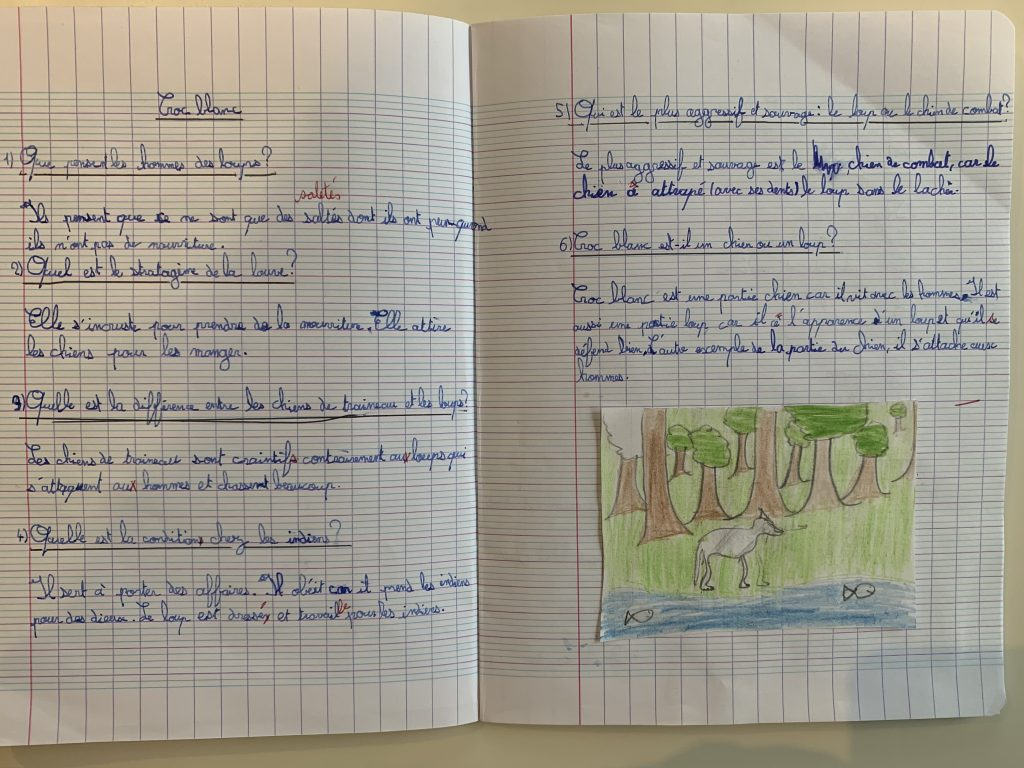 Croc blanc
1) Que pensent les hommes des loups?
saletés
Ils pensent que ce ne sont que des saltés dont ils ont peur quand
ils n'ont pas de nourriture.
2) Quel est le stratagème de la louve?
Elle s'incruste pour prendre de la nourriture. Elle attire
les chiens pour les manger.
3) Quelle est la différence entre les chiens de traineau et les loups?
Les chiens de traineau sont craintifs contrairement aux loups qui
s'attaquent aux hommes et chassent beaucoup.
4) Quelle est la condition chez les indiens?
Il sert à porter des affaires. Il obéit car il prend les indiens
pour des dieux. Le loup est dressé et travaille pour les indiens.
5) Qui est le plus aggressif et sauvage: le loup ou le chien de combat?
Le plus aggressif et sauvage est le chien de combat, car le
chien a attrapé (avec ses dents) le loup sans le lacher.
6) Croc blanc est-il un chien ou un loup?
Croc blanc est une partie chien car il vit avec les hommes. Il est
aussi une partie loup car il a l'apparence d'un loup et qu'il se
défend bien. L'autre exemple de la partie du chien, il s'attache aux
hommes.